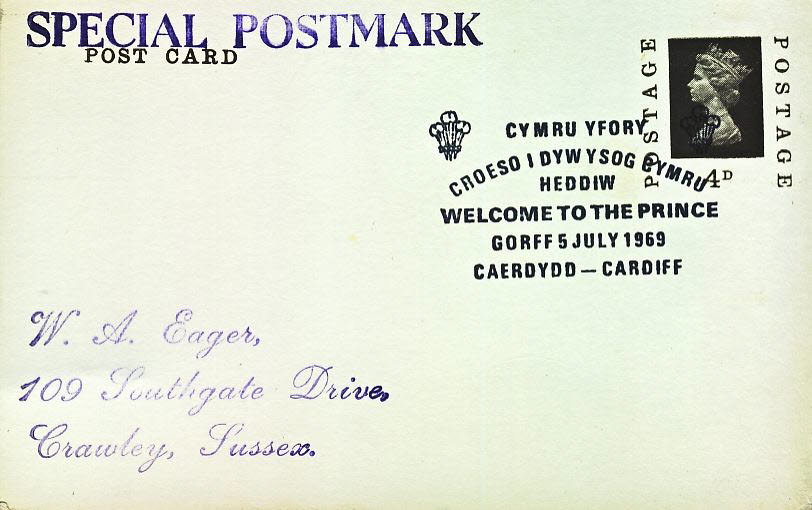 SPECIAL POSTMARK
POST CARD
POSTAGE
POSTAGE
4D
CYMRU YFORY
CROESO I DYWYSOG CYMRU
HEDDIW
WELCOME TO THE PRINCE
GORFF 5 JULY 1969
CAERDYDD — CARDIFF
W. A. Eager,
109 Southgate Drive,
Crawley, Sussex.